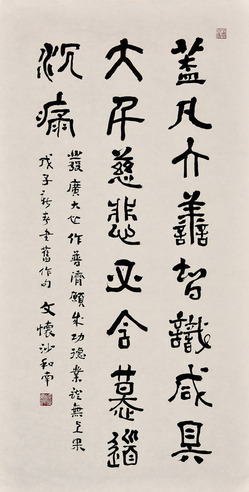 蓋凡介善智識咸具
大千慈悲必含
沉痛
發廣大心作普濟願成功德業證無上果
戊子新春書舊作句文懷沙和南